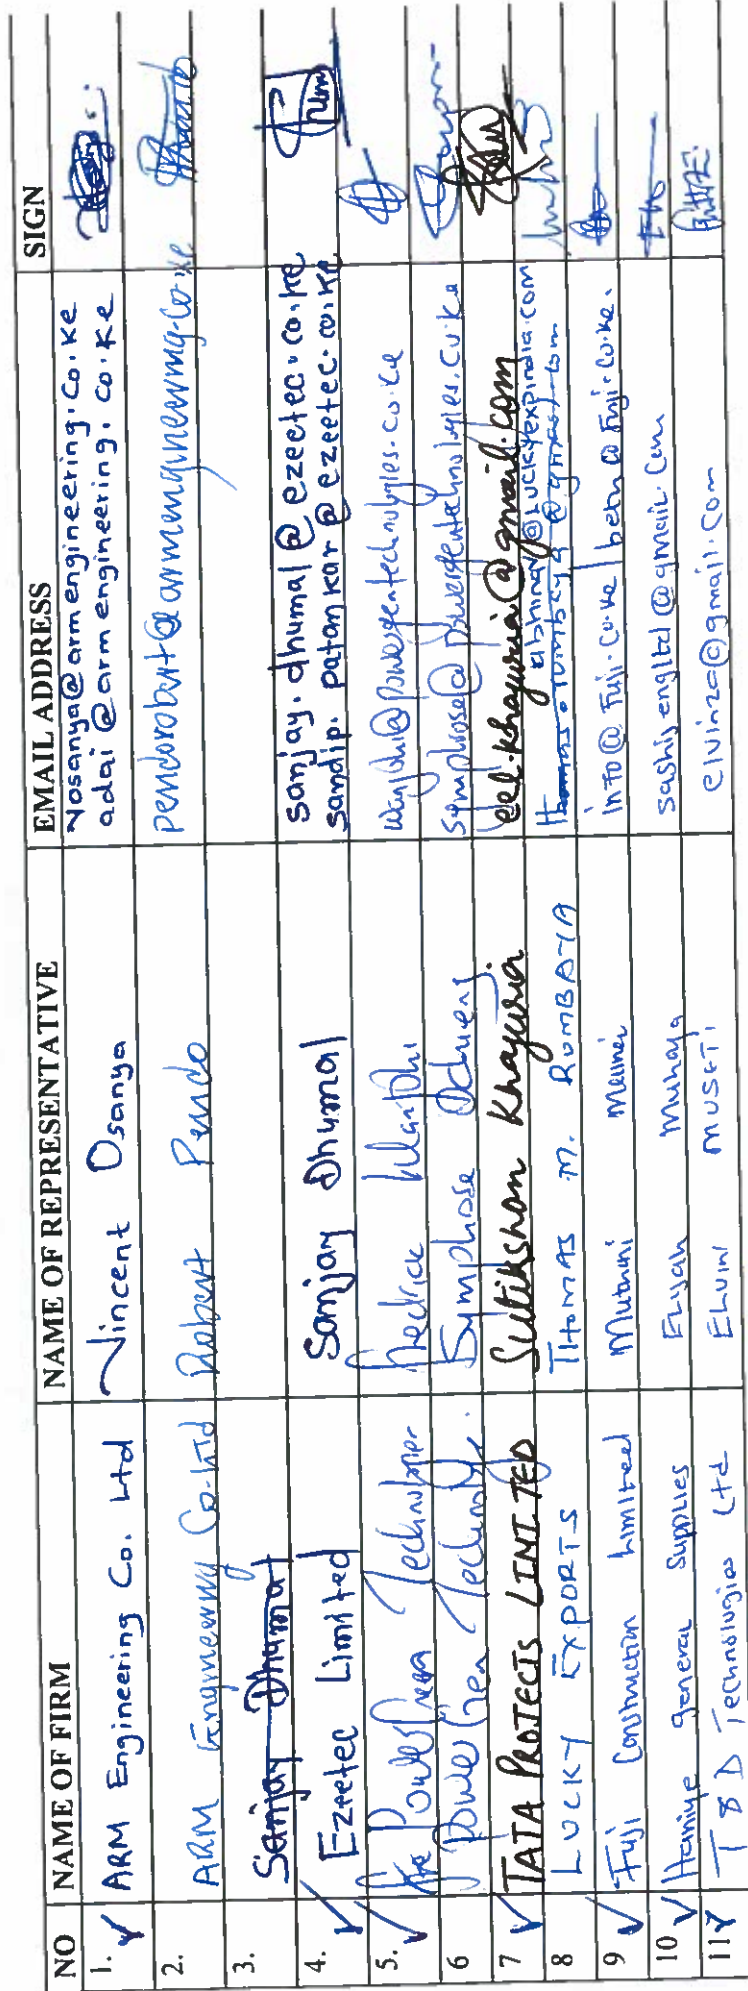 NO NAME OF FIRM NAME OF REPRESENTATIVE EMAIL ADDRESS SIGN
1. ARM Engineering Co. Ltd Vincent Osanya Vosanya@armengineering.co.ke
adai@armengineering.co.ke
2. ARM Engineering Co. Ltd Robert Pendo pendorobert@armengineering.co.ke
3. Sanjay Dhumal
4. Ezeetec Limited Sanjay Dhumal sanjay.dhumal@ezeetec.co.ke
sandip.patankar@ezeetec.co.ke
5. PowerGen Technologies @powergentechnologies.co.ke
6 PowerGen Technologies Symphrose Ochieng symphrose@powergentechnologies.co.ke
7 TATA PROJECTS LIMITED Sutikshan Khajuria eel.khajuria@gmail.com
8 LUCKY EXPORTS THOMAS M. RUMBAYA abhinav@luckyexpindia.com
9 Fuji Construction Limited Mutunri info@fuji.co.ke @fuji.co.ke.
10 General Supplies Elijah Muhaya @gmail.com
11 T & D Technologies Ltd ELVINI MUSETI elvinze@gmail.com